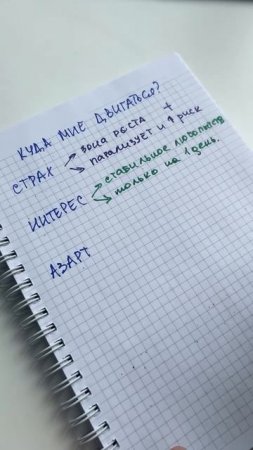 КУДА МНЕ ДВИГАТЬСЯ?
СТРАХ → зона роста +
→ парализует и ↑ риск
ИНТЕРЕС → стабильное любопытство
→ только на 1 день.
АЗАРТ